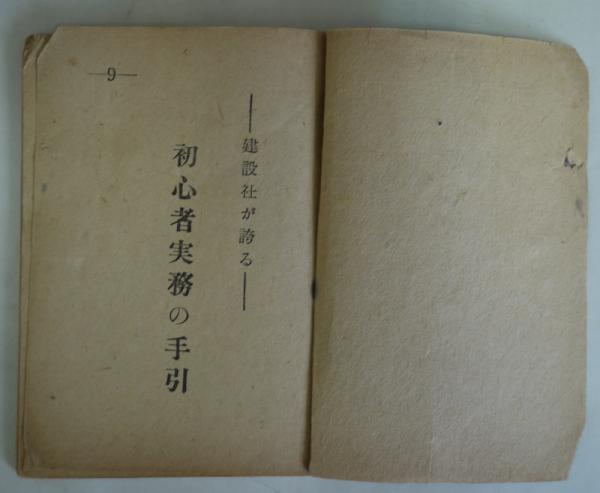 ―9―
――建設社が誇る――
初心者実務の手引